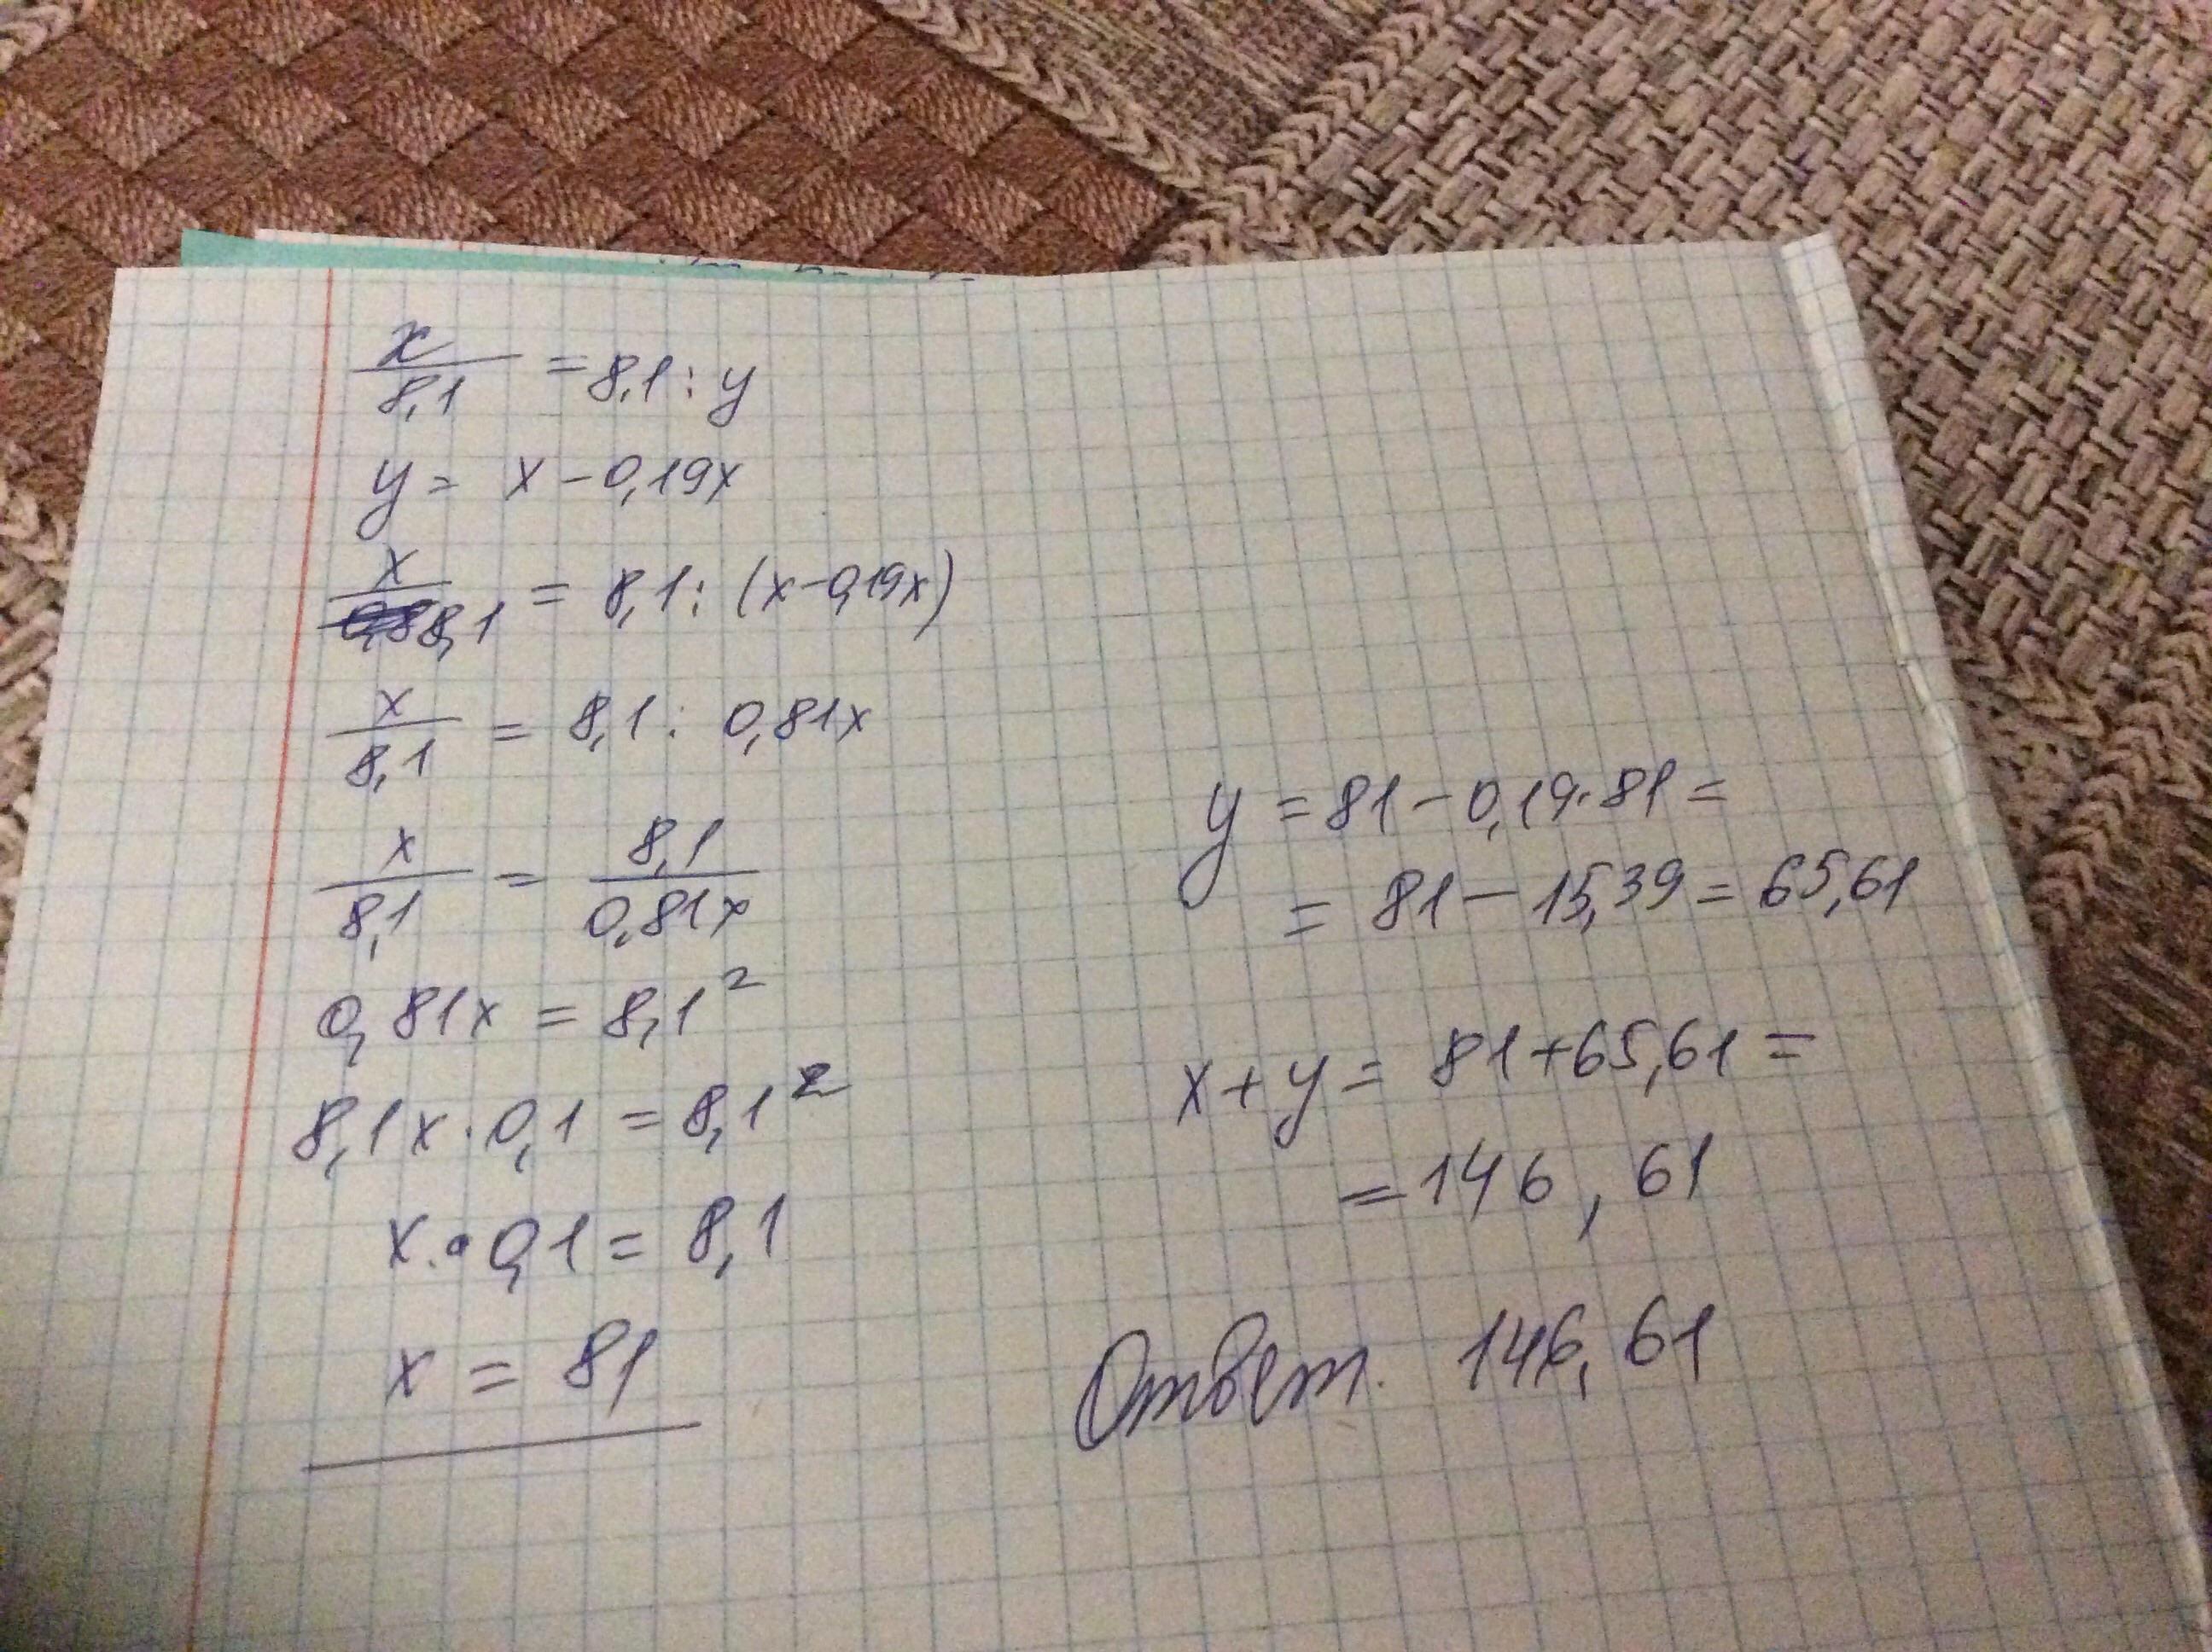 x/8,1 = 8,1 : y
y = x - 0,19x
x/8,1 = 8,1 : (x - 0,19x)
x/8,1 = 8,1 : 0,81x
x/8,1 = 8,1/0,81x
0,81x = 8,1²
8,1x · 0,1 = 8,1²
x · 0,1 = 8,1
x = 81
y = 81 - 0,19 · 81 =
= 81 - 15,39 = 65,61
x + y = 81 + 65,61 =
= 146,61
Ответ. 146,61